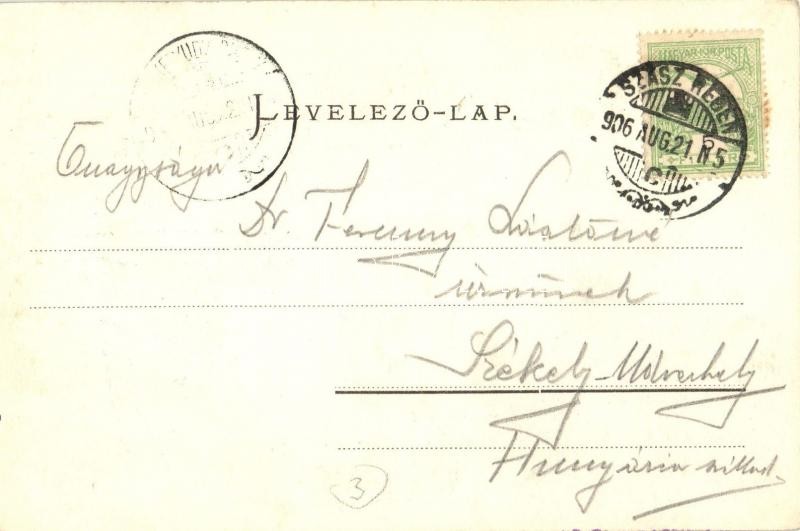 MAGYAR KIR. POSTA
SZÁSZ RÉGEN
906 AUG. 21. N5
C
LEVELEZŐ-LAP.
Őnagysága
Dr. Ferenczy Lászlóné
úrnőnek
Székely-Udvarhely
Hungária szálloda
3